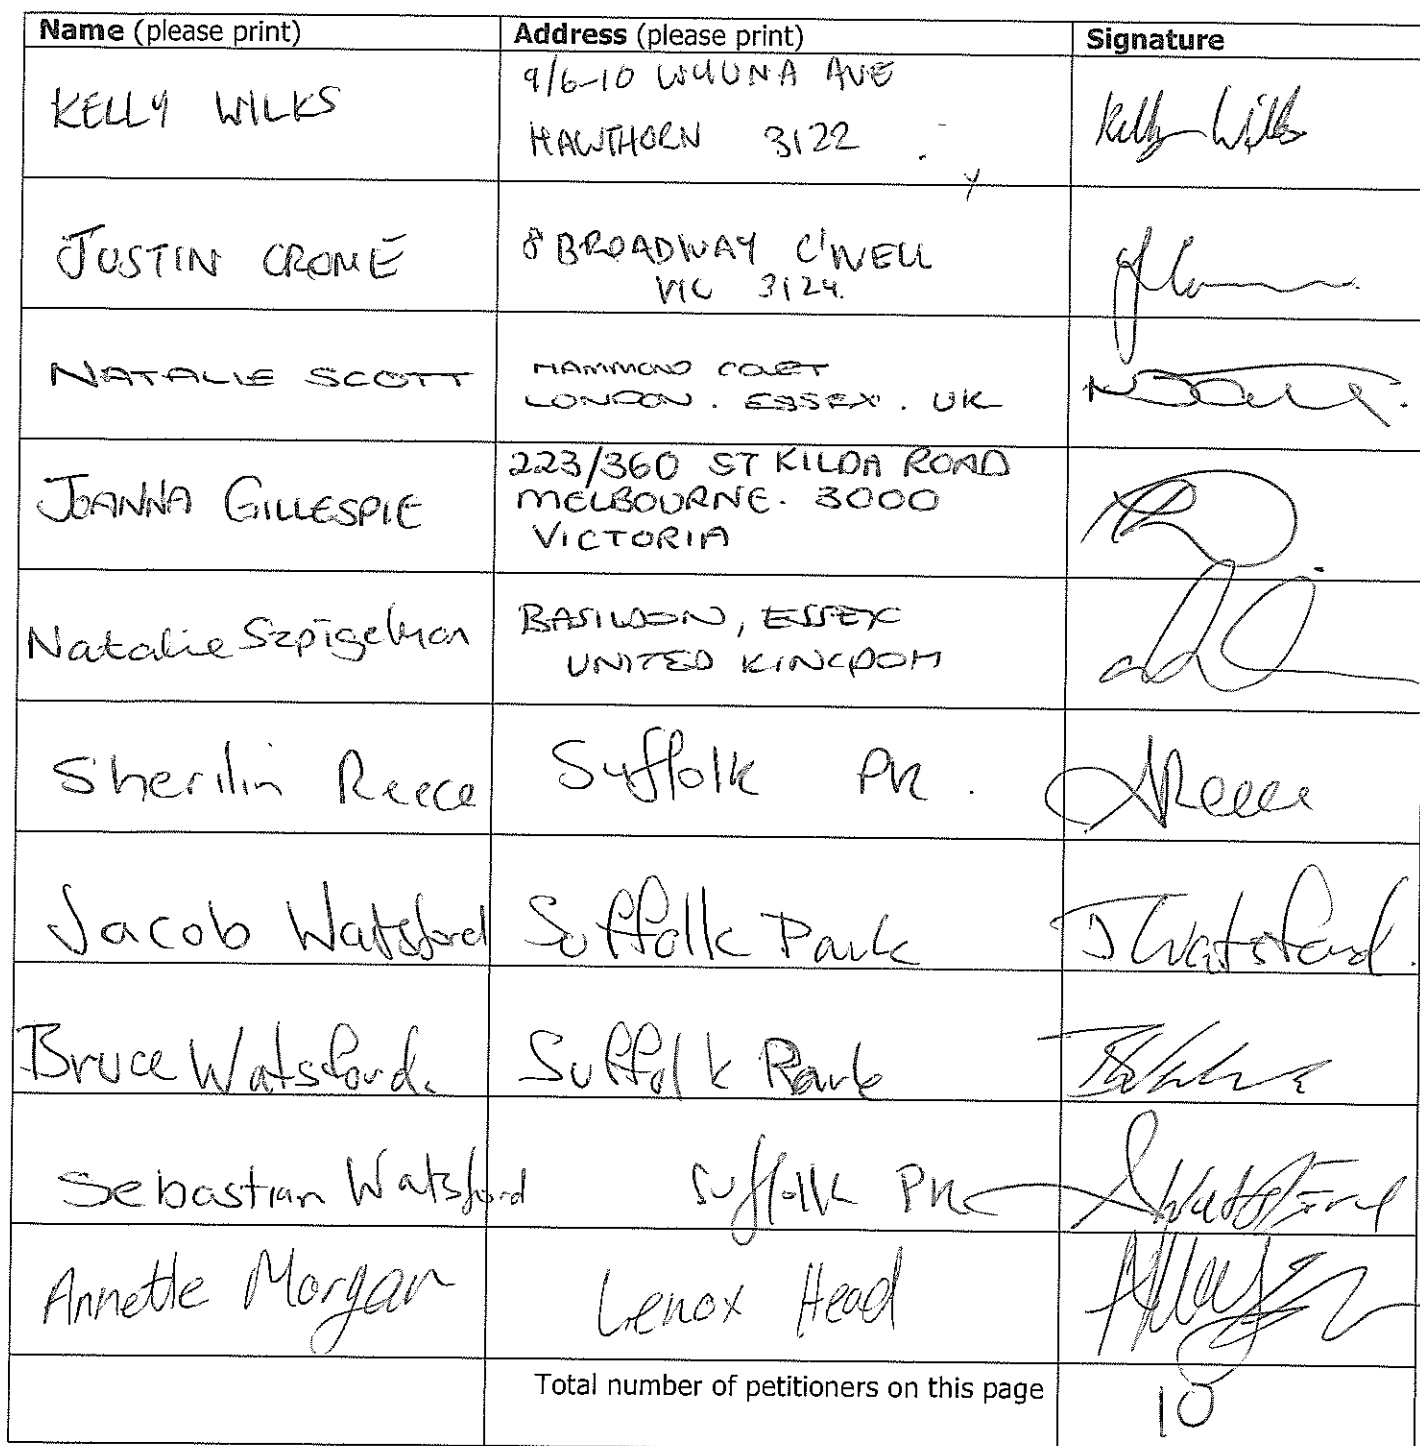 Name (please print) Address (please print) Signature
KELLY WILKS
9/6-10 WYUNA AVE
HAWTHORN 3122
Kelly Wilks
JUSTIN CROME
8 BROADWAY C'WELL
VIC 3124.
NATALIE SCOTT
HAMMOND COURT
LONDON. ESSEX. UK
JOANNA GILLESPIE
223/360 ST KILDA ROAD
MELBOURNE. 3000
VICTORIA
Natalie Szpigelman
BASILDON, ESSEX
UNITED KINGDOM
Sherilin Reece
Suffolk PK.
SReece
Jacob Watsford
Suffolk Park
JWatsford.
Bruce Watsford.
Suffolk Park
Sebastian Watsford
Suffolk PK
SWatsford
Annette Morgan
Lenox Head
Total number of petitioners on this page
10